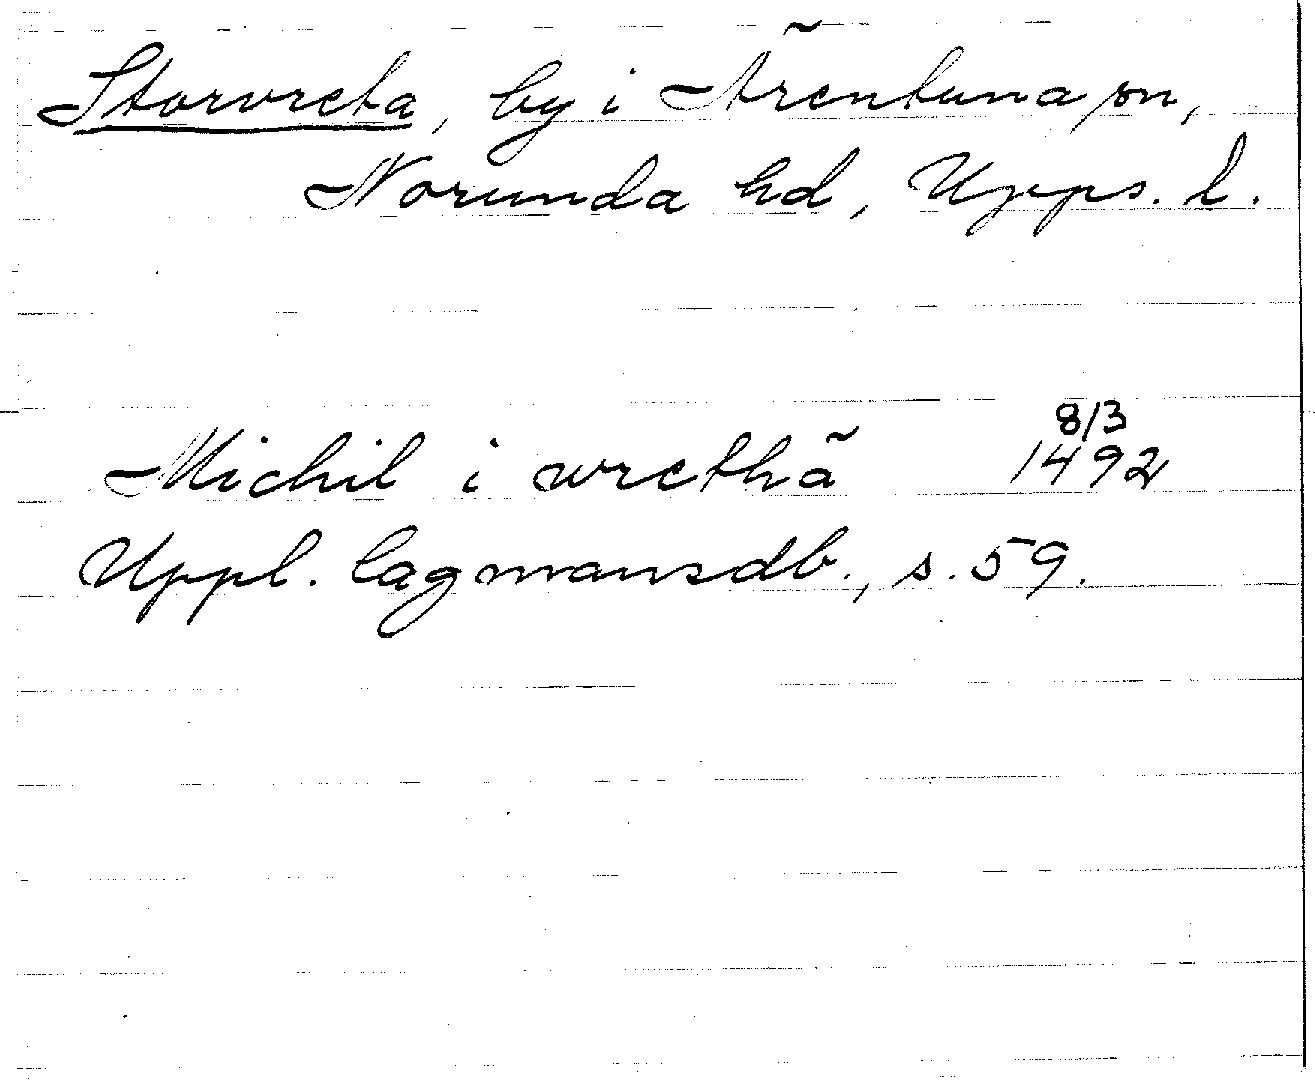 Storvreta, by i Ärentuna sn,
Norunda hd, Upps. l.
8/3
Michil i wrethä 1492
Uppl. lagmansdb., s. 59.